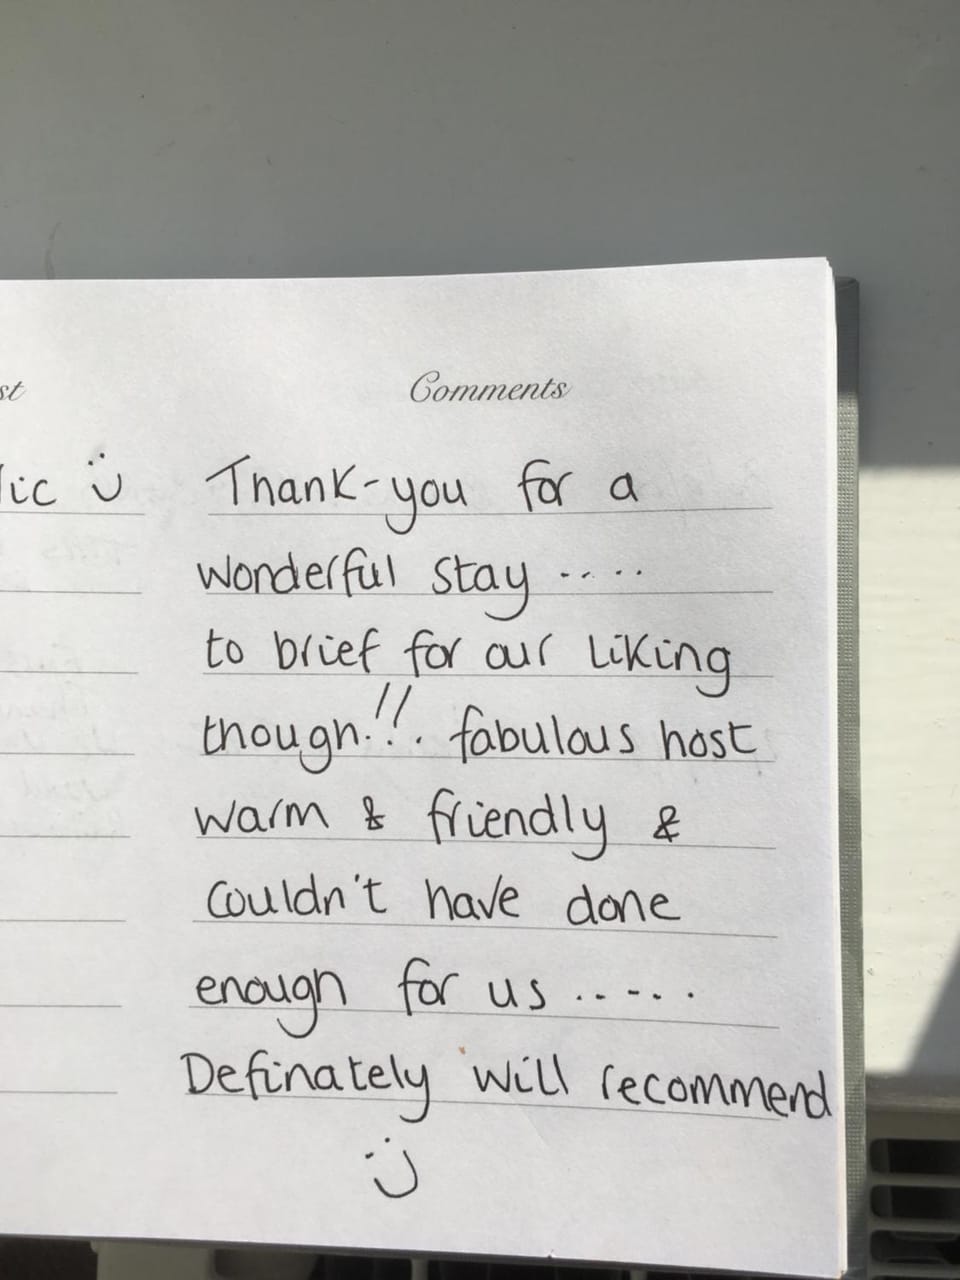 st Comments
lic Thank-you for a
wonderful stay .....
to brief for our liking
though.!!. fabulous host
warm & friendly &
couldn't have done
enough for us .....
Definately will recommend